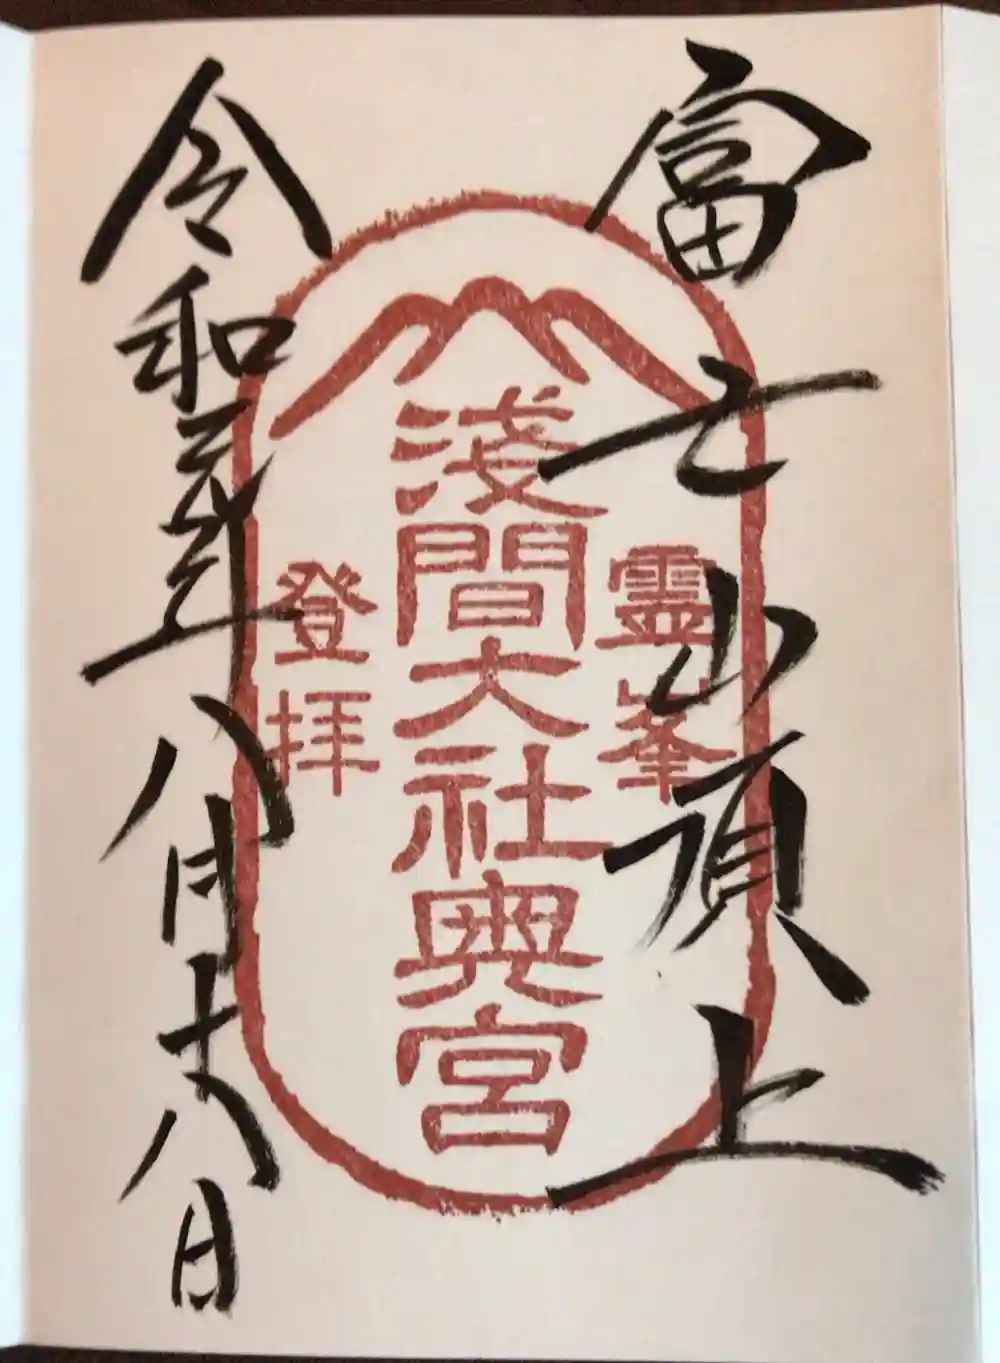 富士山頂上
霊峯
淺間大社奥宮
登拝
令和元年八月十八日